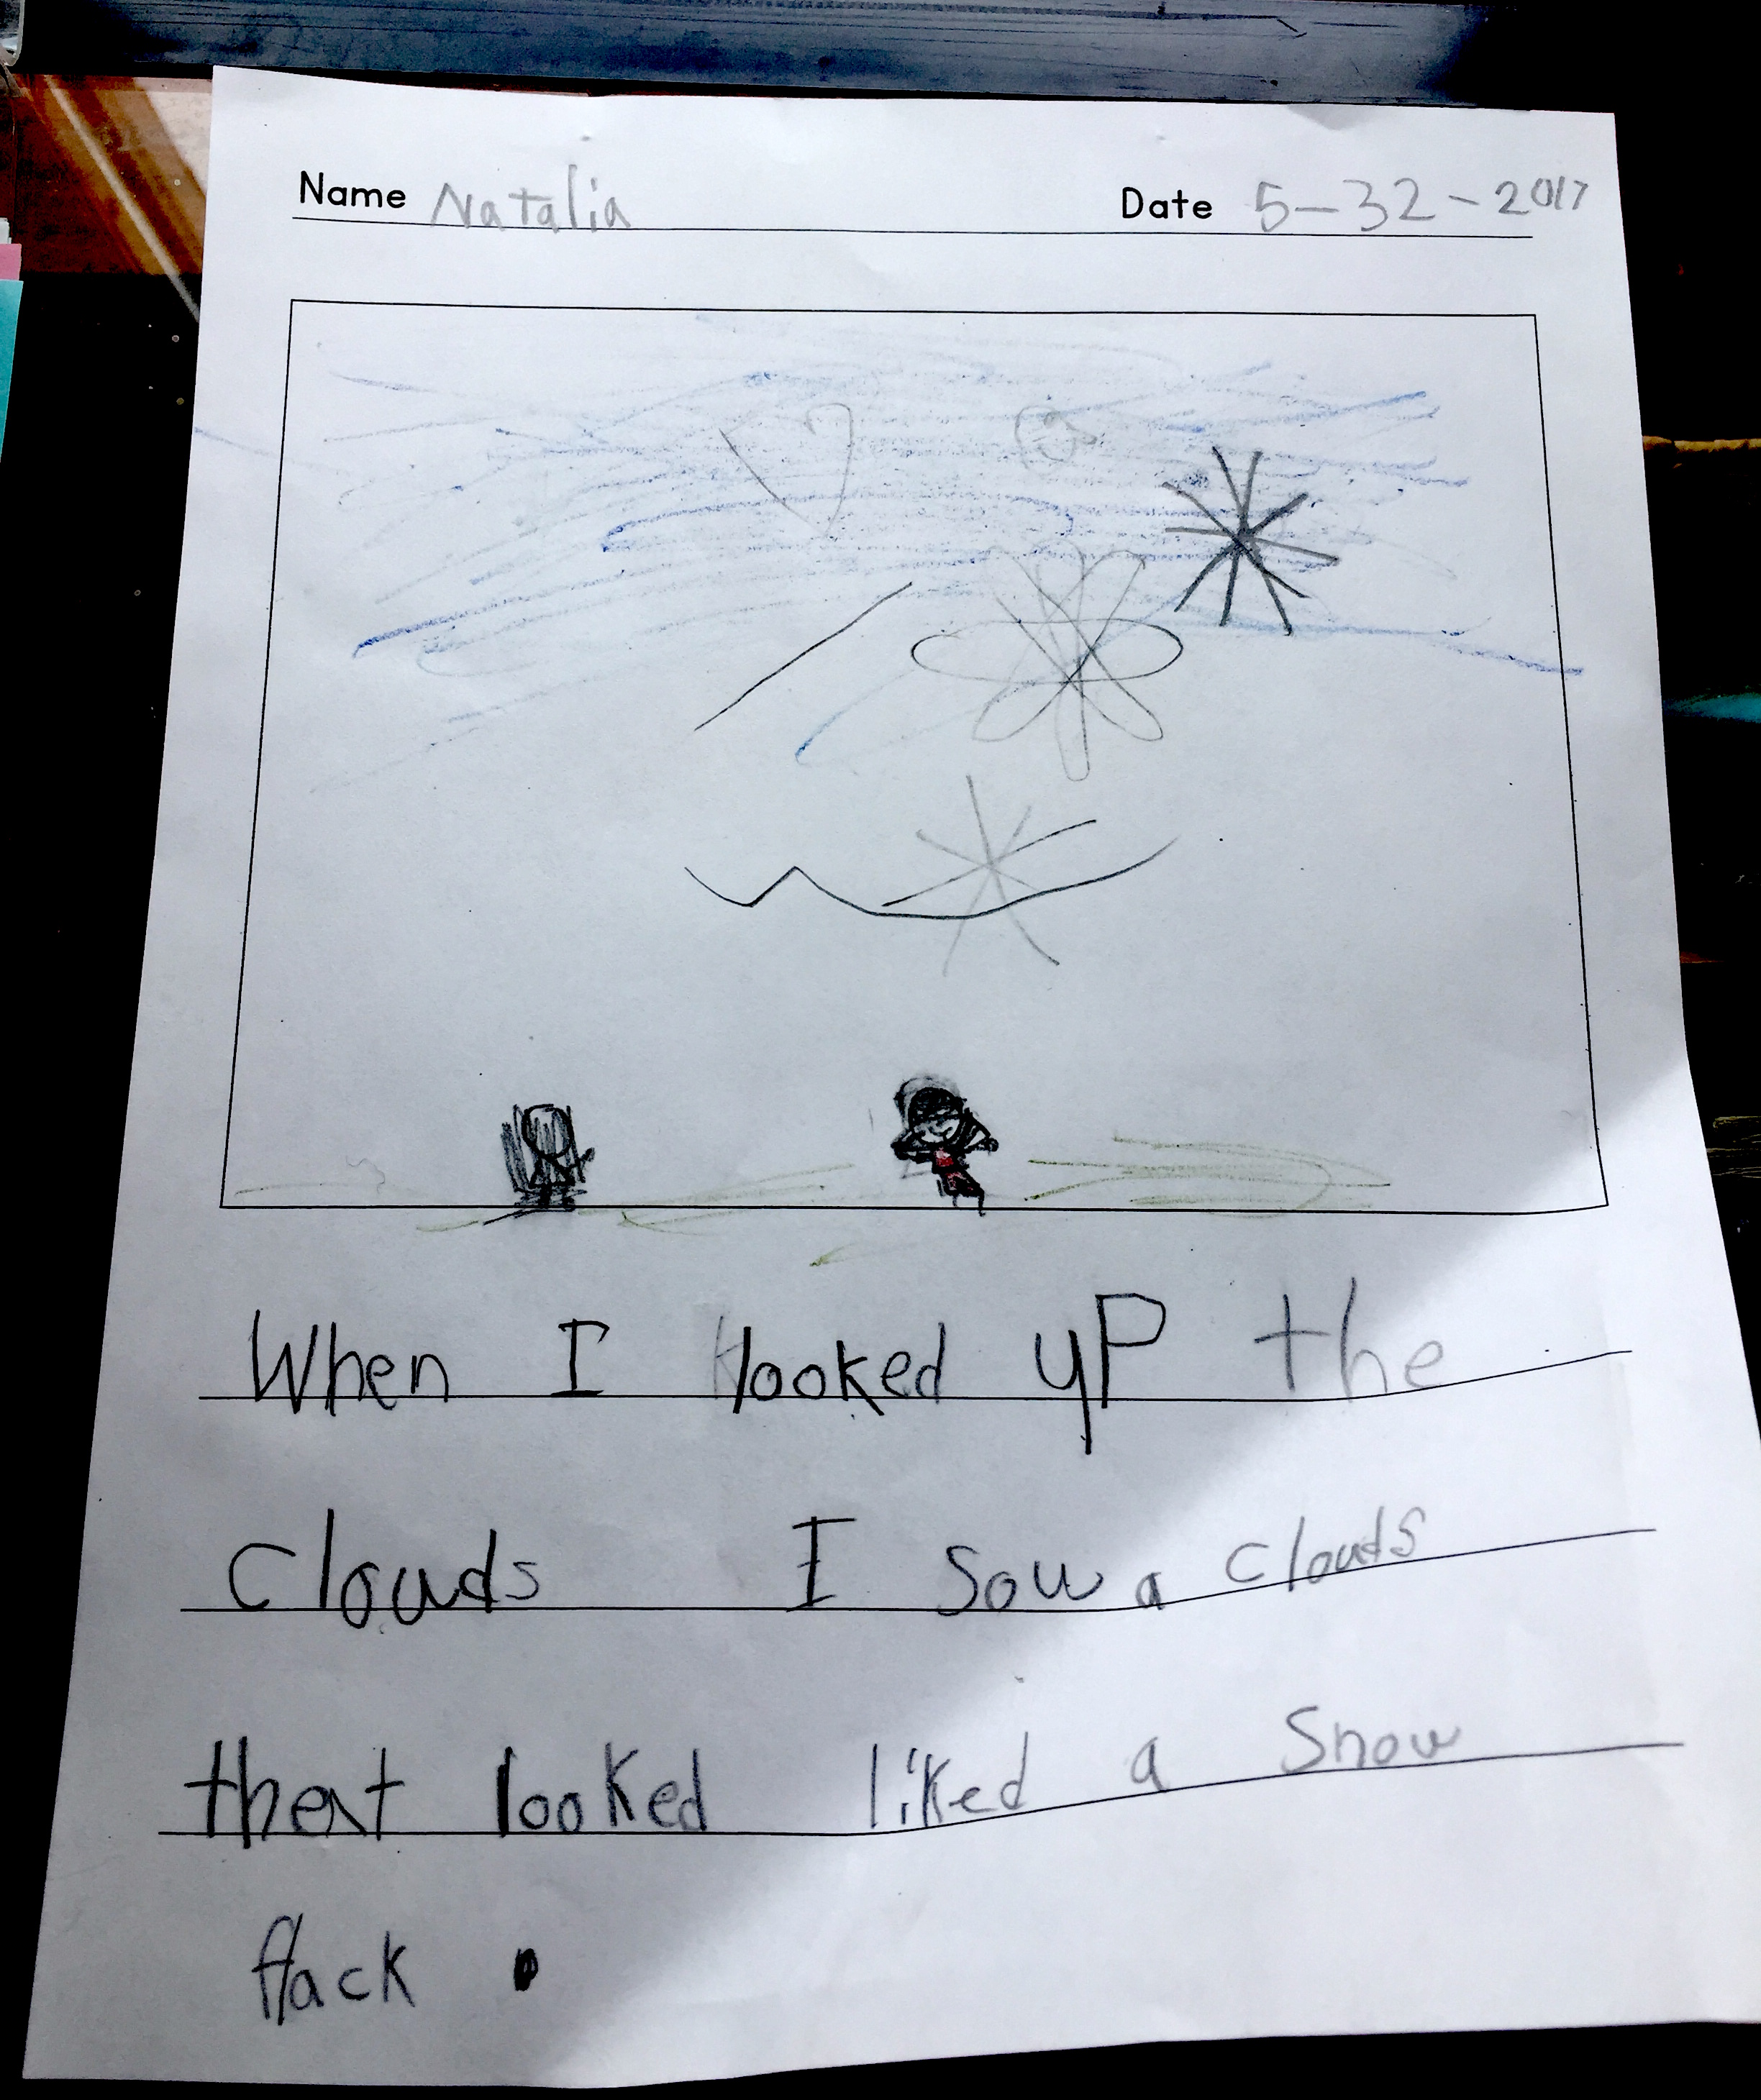 Name Natalia Date 5-32-2017
When I looked up the
clouds I sow a clouds
that looked liked a snow
flack .